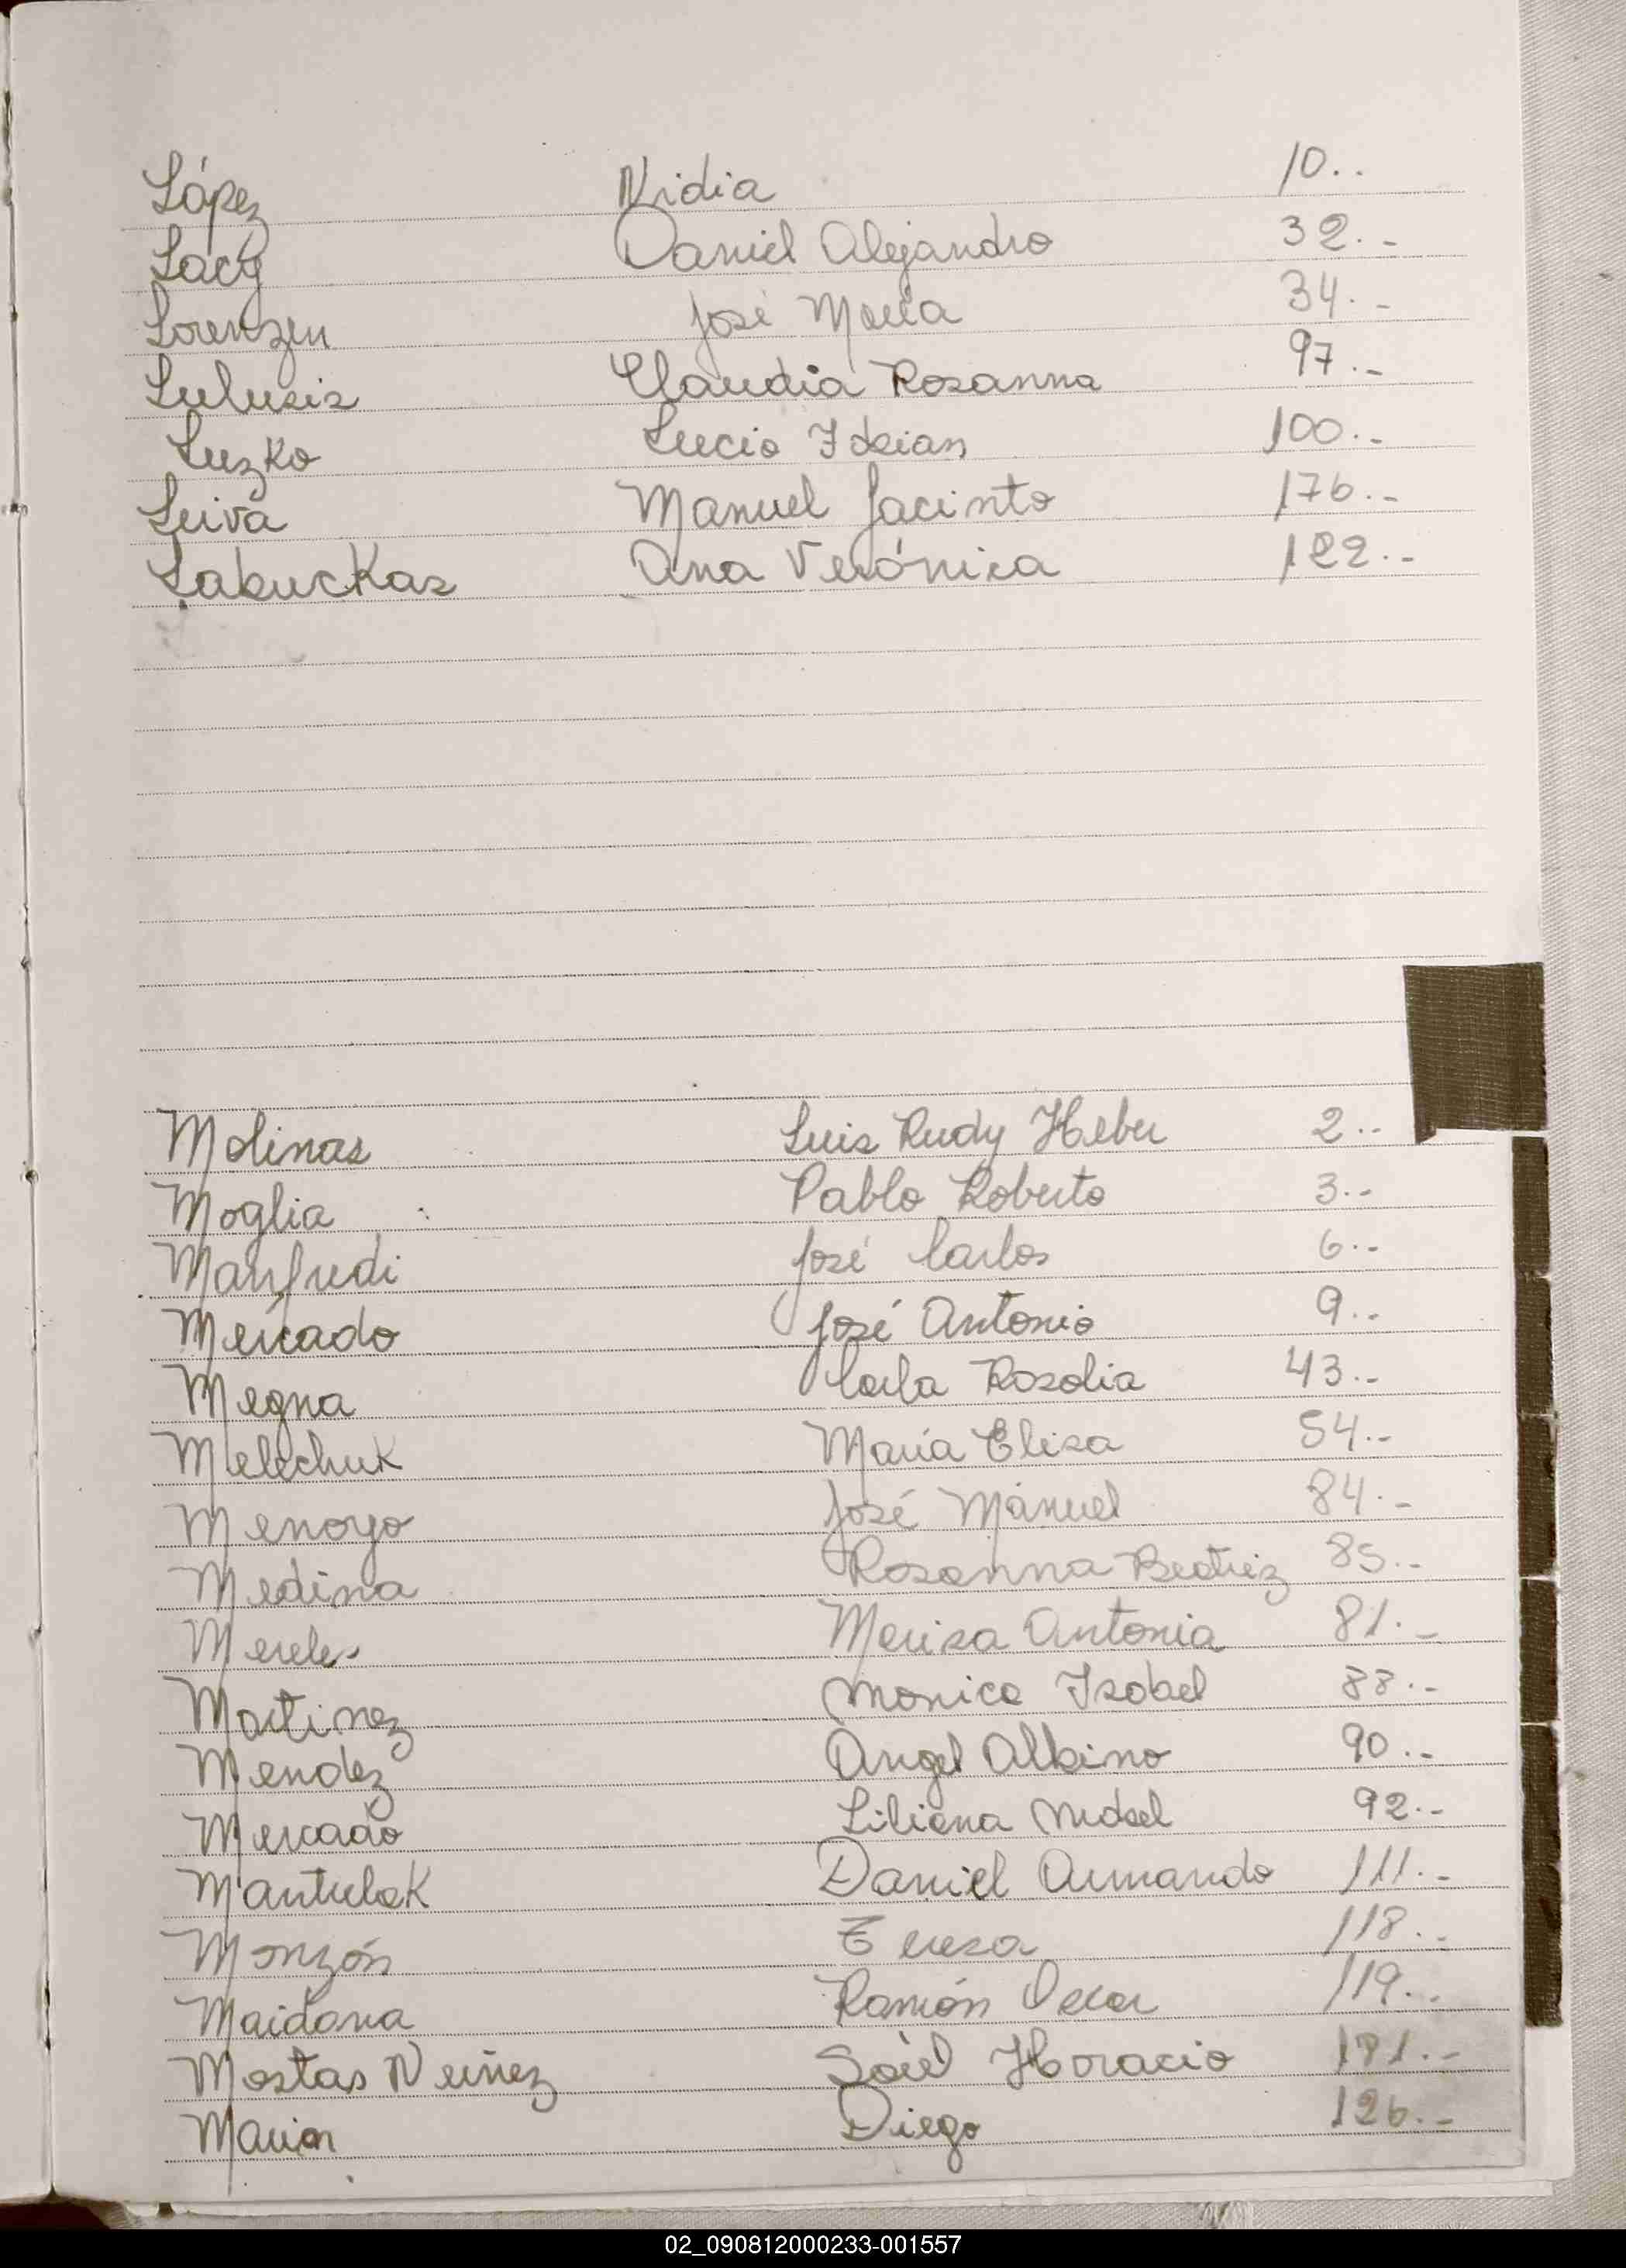 López Nidia 10..
Lacy Daniel Alejandro 32.-
Lorenzen José María 34.-
Lulusis Claudia Rosanna 97.-
Luzko Lucio 100.-
Leiva Manuel Jacinto 176.-
LabucKas Ana Verónica 122.-
Molinas Luis Rudy Heber 2..
Moglia Pablo Roberto 3.-
Manfredi José Carlos 6.-
Mercado José Antonio 9..
Megna Carla Rosolia 43.-
MelechuK María Elisa 54.-
Menoyo José Manuel 84.-
Medina Rosanna Beatriz 85.-
Mereles Marisa Antonia 81.-
Martinez Monica Isabel 88.-
Mendez Angel Albino 90.-
Mercado Liliana Mabel 92.-
MantulaK Daniel Armando 111.-
Monzón Teresa 118..
Maidana Ramón Oscar 119..
Nuñez Horacio
Diego 126.-
02_090812000233-001557